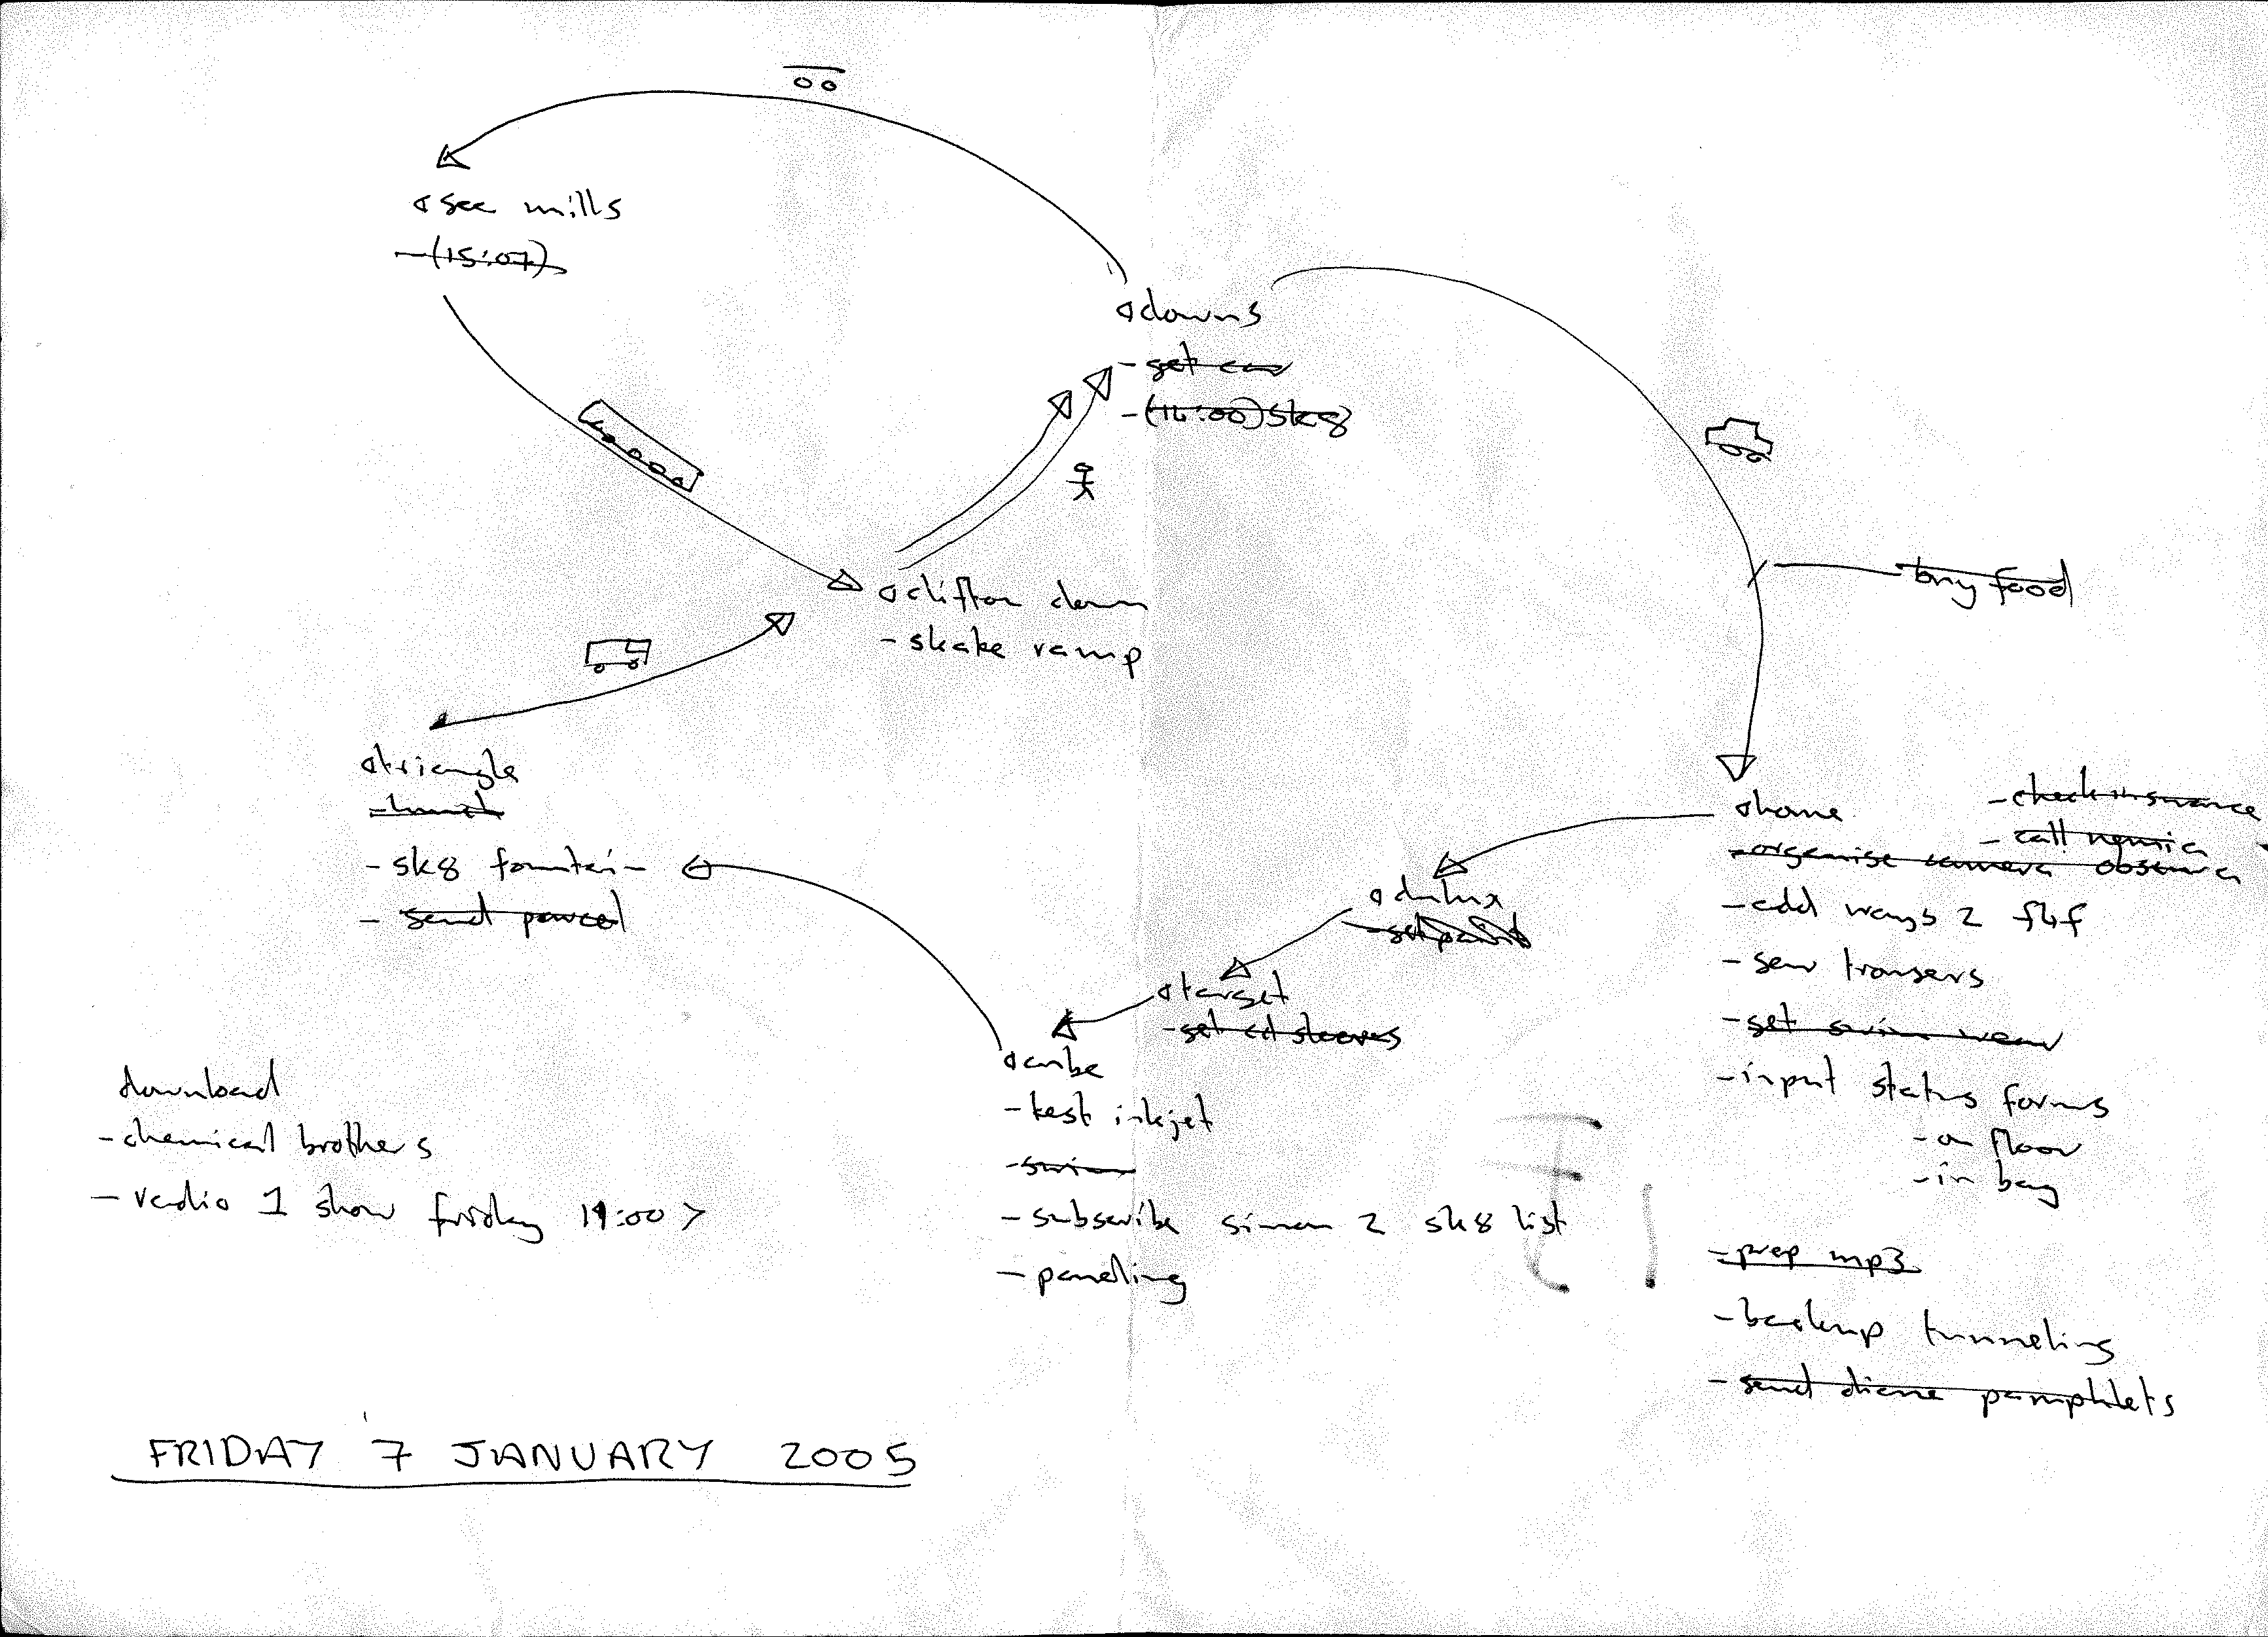 see mills
-(15:07)
downs
- get car
-(14:00) sk8
clifton down
- skate ramp
- buy food
triangle
- lunch
- sk8 fountain
- send parcel
home
- check insurance
- call
- organise camera obscura
- add ways 2 f4f
- sew trousers
- get swim wear
- input status forms
- on floor
- in bag
- prep mp3
- backup tunneling
- send diane pamphlets
dulux
- get paint
target
- get cd sleeves
cube
- test inkjet
- swim
- subscribe simon 2 sk8 list
- paneling
download
- chemical brothers
- radio 1 show friday 19:00 >
FRIDAY 7 JANUARY 2005